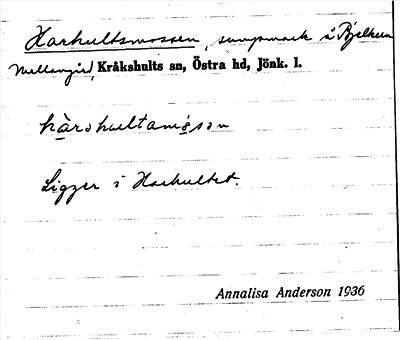 Harhultsmossen, sumpmark å Bjelkum
Mellangård, Kråkshults sn, Östra hd, Jönk. l.
Ligger i Harhultet.
Annalisa Anderson 1936